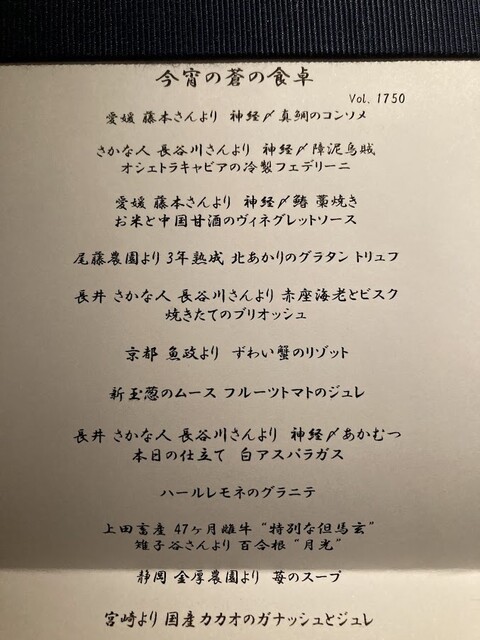 今宵の蒼の食卓
Vol. 1750
愛媛 藤本さんより 神経〆真鯛のコンソメ
さかな人 長谷川さんより 神経〆障泥烏賊
オシェトラキャビアの冷製フェデリーニ
愛媛 藤本さんより 神経〆鰆 藁焼き
お米と中国甘酒のヴィネグレットソース
尾藤農園より 3年熟成 北あかりのグラタン トリュフ
長井 さかな人 長谷川さんより 赤座海老とビスク
焼きたてのブリオッシュ
京都 魚政より ずわい蟹のリゾット
新玉葱のムース フルーツトマトのジュレ
長井 さかな人 長谷川さんより 神経〆あかむつ
本日の仕立て 白アスパラガス
ハールレモネのグラニテ
上田畜産 47ヶ月雌牛 “特別な但馬玄”
雉子谷さんより 百合根 “月光”
静岡 金厚農園より 苺のスープ
宮崎より 国産カカオのガナッシュとジュレ